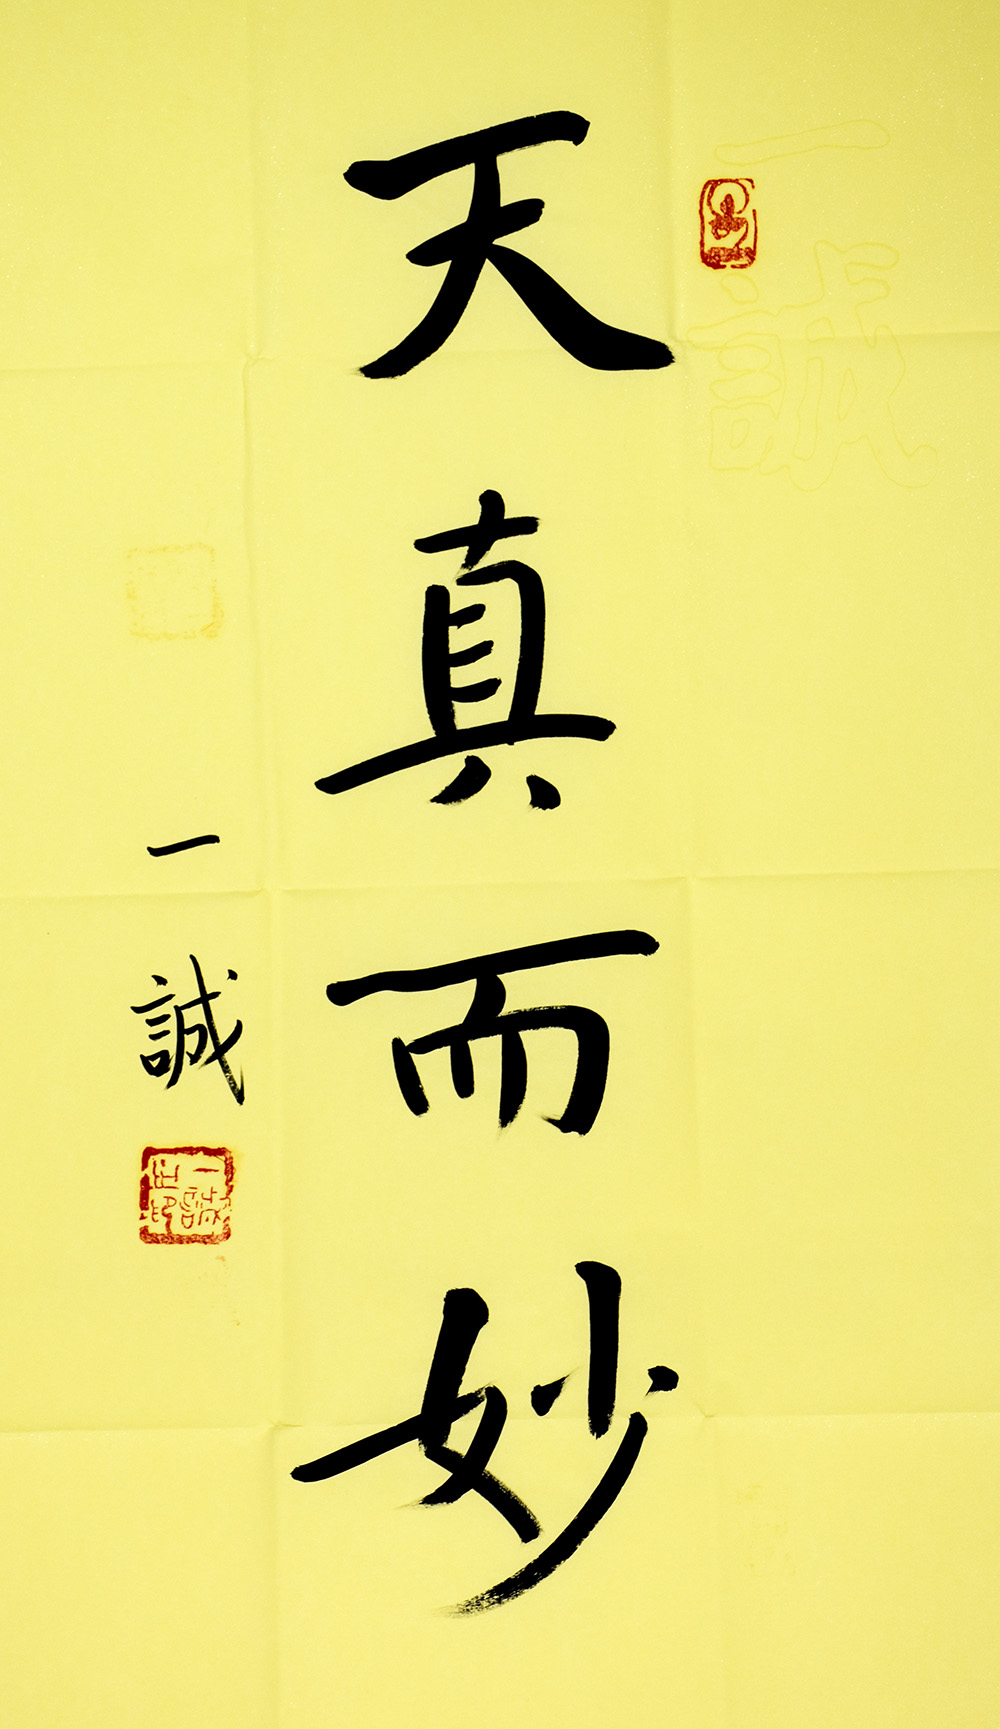 天真而妙
一誠
一誠
一誠之印